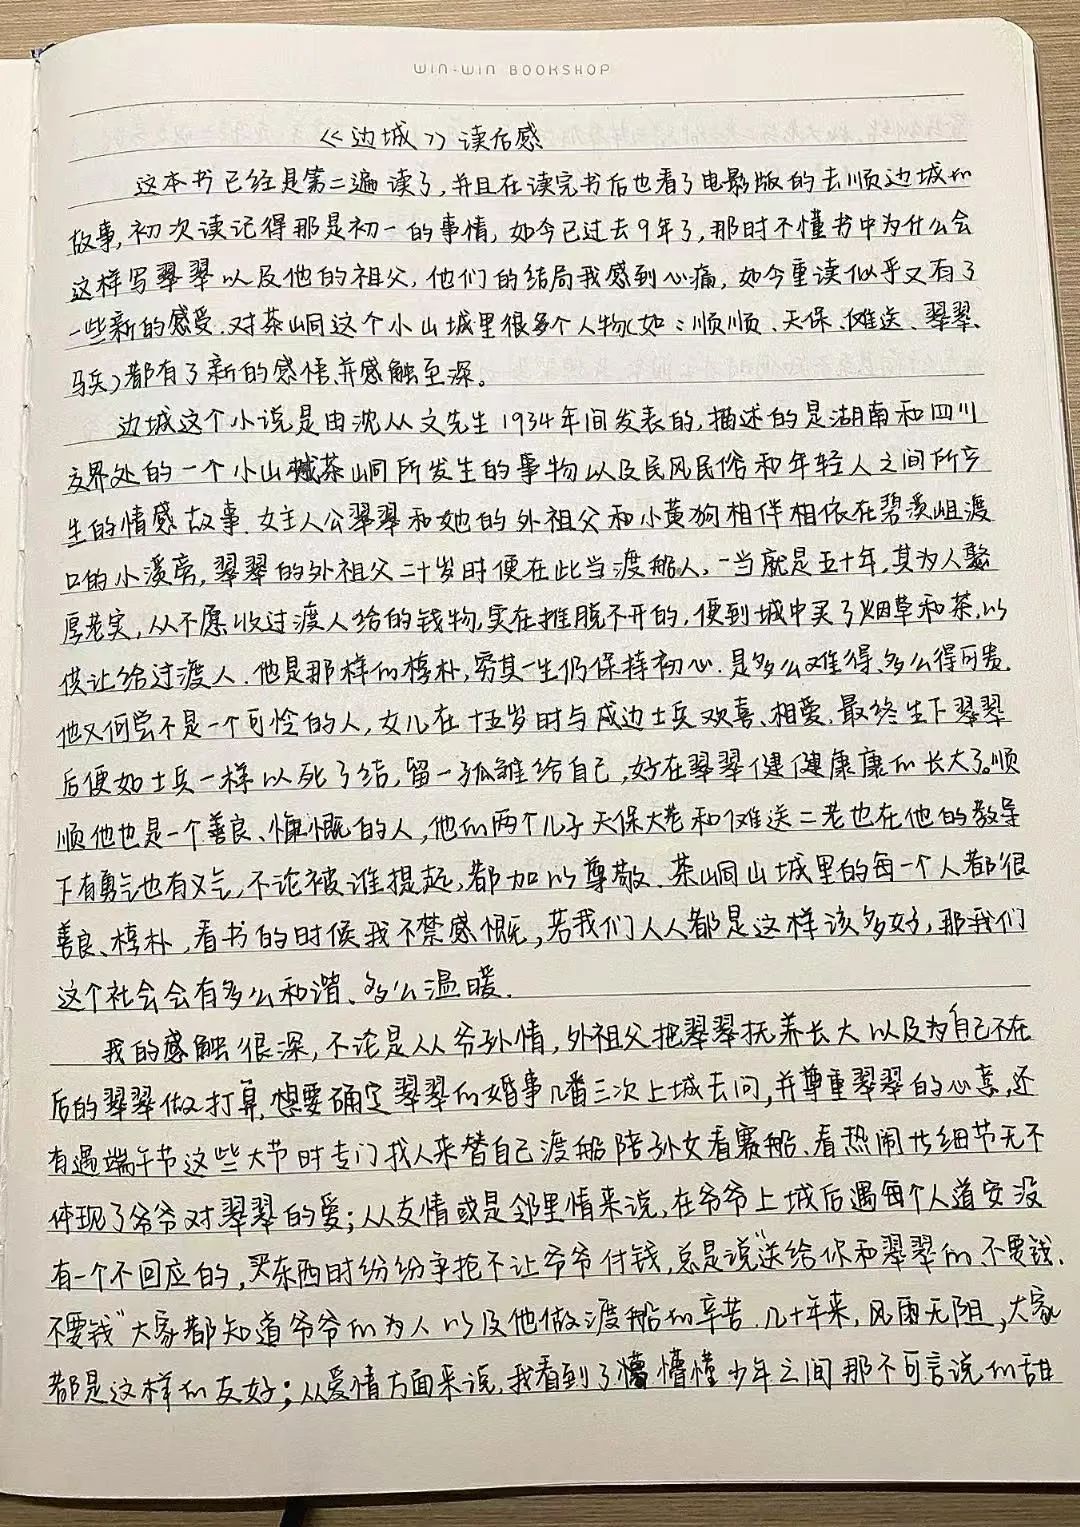 WIN-WIN BOOKSHOP
《边城》读后感
这本书已经是第二遍读了,并且在读完书后也看了电影版的去顺边城的
故事,初次读记得那是初一的事情,如今已过去9年了,那时不懂书中为什么会
这样写翠翠以及他的祖父,他们的结局我感到心痛,如今重读似乎又有了
一些新的感受.对茶峒这个小山城里很多个人物(如:顺顺、天保、傩送、翠翠、
马兵)都有了新的感悟,并感触至深。
边城这个小说是由沈从文先生1934年间发表的,描述的是湖南和四川
交界处的一个小山城茶峒所发生的事物以及民风民俗和年轻人之间所产
生的情感故事.女主人公翠翠和她的外祖父和小黄狗相伴相依在碧溪岨渡
口的小溪旁,翠翠的外祖父二十岁时便在此当渡船人,一当就是五十年,其为人憨
厚老实,从不愿收过渡人给的钱物,实在推脱不开的,便到城中买了烟草和茶,以
供让给过渡人.他是那样的淳朴,穷其一生仍保持初心.是多么难得、多么得可贵.
他又何尝不是一个可怜的人,女儿在十五岁时与戍边士兵欢喜、相爱,最终生下翠翠
后便如士兵一样以死了结,留一孤雏给自己,好在翠翠健健康康的长大了。顺
顺他也是一个善良、慷慨的人,他的两个儿子天保大老和傩送二老也在他的教导
下有勇气也有义气,不论被谁提起,都加以尊敬.茶峒山城里的每一个人都很
善良、淳朴,看书的时候我不禁感慨,若我们人人都是这样该多好,那我们
这个社会会有多么和谐、多么温暖.
我的感触很深,不论是从爷孙情,外祖父把翠翠抚养长大以及为自己不在
后的翠翠做打算,想要确定翠翠的婚事几番三次上城去问,并尊重翠翠的心意,还
有遇端午节这些大节时专门找人来替自己渡船陪孙女看赛船、看热闹等细节无不
体现了爷爷对翠翠的爱;从友情或是邻里情来说,在爷爷上城后遇每个人道安没
有一个不回应的,买东西时纷纷争抢不让爷爷付钱,总是说"送给你和翠翠的、不要钱、
不要钱"大家都知道爷爷的为人以及他做渡船的辛苦.几十年来,风雨无阻,大家
都是这样的友好;从爱情方面来说,我看到了懵懂少年之间那不可言说的甜